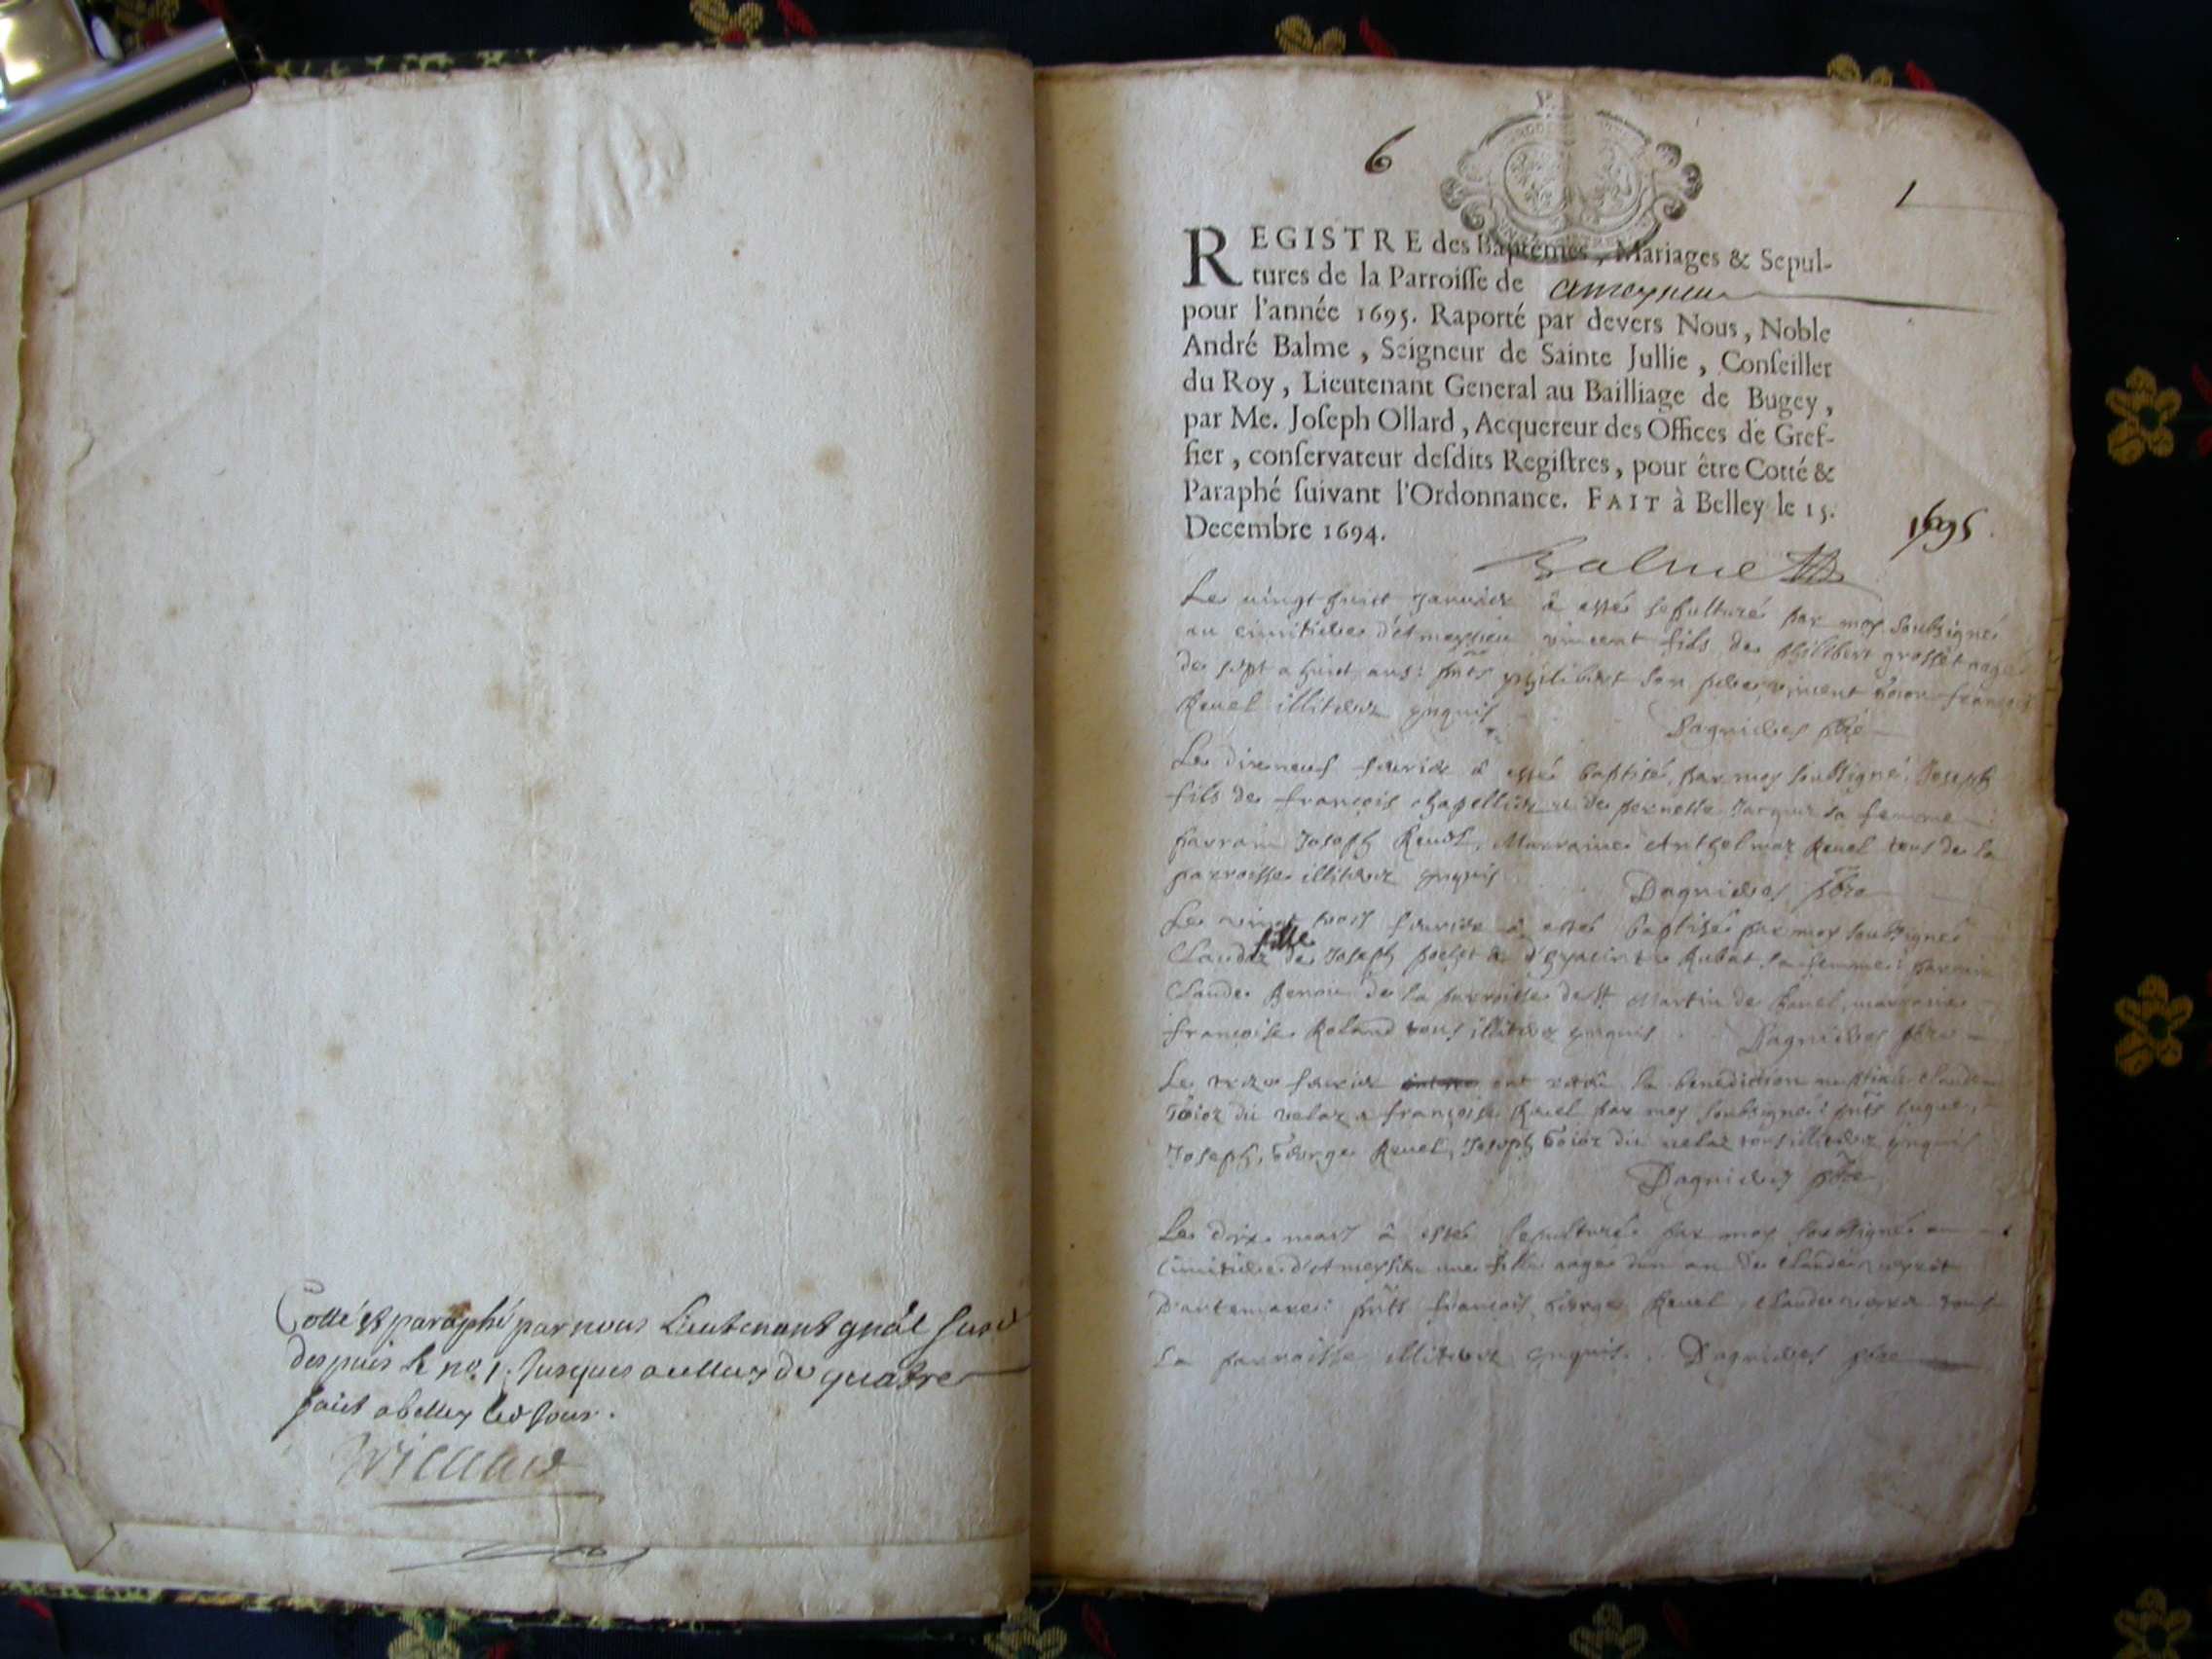 Cotté et paraphé par nous Lieutenant gnâl
despuis le no. 1. jusques a celluy de quatre
fait a belley led jour.
6
1
REGISTRE des Baptêmes, Mariages & Sepul-
tures de la Parroisse de ameysieu
pour l'année 1695. Raporté par devers Nous, Noble
André Balme, Seigneur de Sainte Jullie, Conseiller
du Roy, Lieutenant General au Bailliage de Bugey,
par Me. Joseph Ollard, Acquereur des Offices de Gref-
fier, conservateur desdits Registres, pour être Cotté &
Paraphé suivant l'Ordonnance. FAIT à Belley le 15.
Decembre 1694.
1695.
Balme
Le vingt huict janvier â esté sepulturé par moy soubsigné
au cimitiere d'Ameysieu vincent fils de philibert grosset aagé
de sept a huict ans: pnts philibert son pere, vincent françois
Revel illiterez enquis
Dagnieres pbre
Le dixneuf fevrier â esté baptisé par moy soubsigné Joseph
fils de françois chapellier & de pernette sa femme:
parrain Joseph Revel, Marraine Anthelmaz Revel tous de la
parroisse illiterez enquis
Dagnieres pbre
Le vingt trois fevrier â esté baptisée par moy soubsigné
Claudaz fille de Joseph & d'hyacinte Rubat sa femme: parrain
Claude de la parroisse de St Martin de Bavel, marraine
françoise Roland tous illiterez enquis
Dagnieres pbre
Le treze fevrier ont receu la benediction nuptiale Claude
du velaz & françoise Revel par moy soubsigné: pnts
Joseph, George Revel, Joseph du velaz tous illiterez enquis
Dagnieres pbre
Le dixe mars â esté sepulturé par moy soubsigné au
cimitiere d'Ameysieu une fille aagée d'un an de Claude
D'artemare: pnts françois, George Revel, Claude tous
La parroisse illiterez enquis. Dagnieres pbre